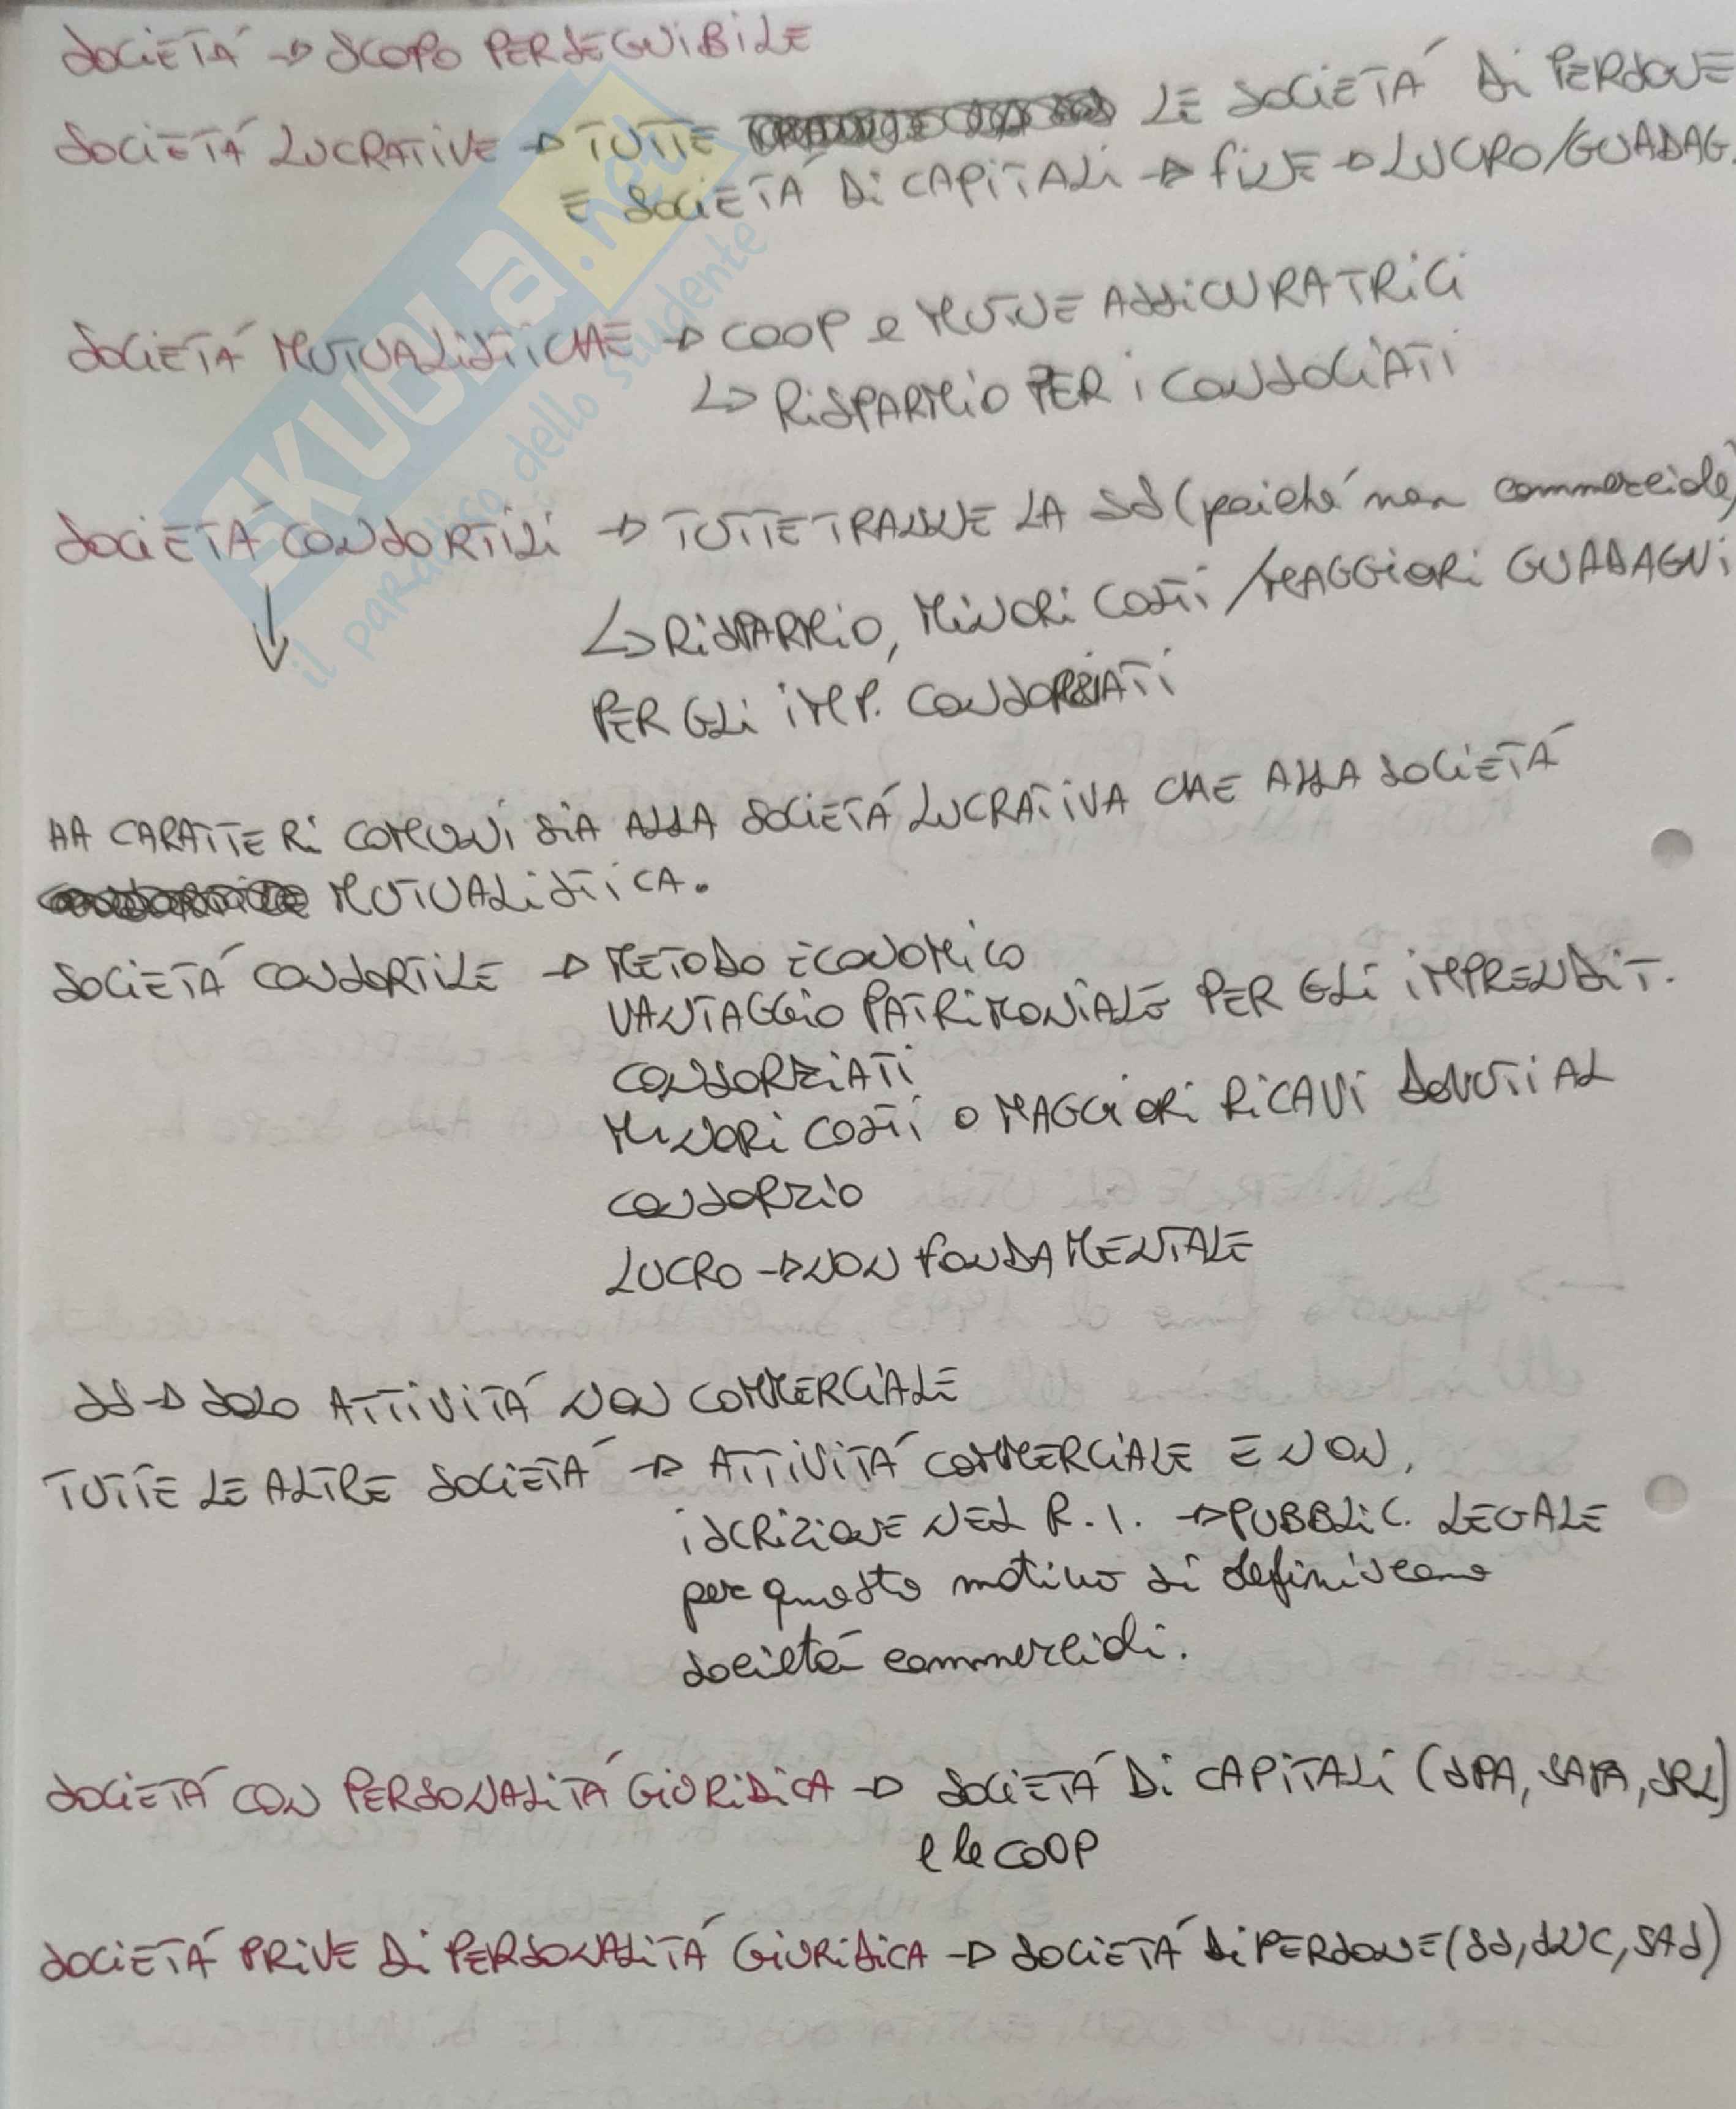 SOCIETÁ → SCOPO PERSEGUIBILE
SOCIETÁ LUCRATIVE → TUTTE LE SOCIETÁ DI PERSONE
E SOCIETÁ DI CAPITALI → FINE → LUCRO/GUADAG.
SOCIETÁ MUTUALISTICHE → COOP e MUTUE ASSICURATRICI
↳ RISPARMIO PER I CONSOCIATI
SOCIETÁ CONSORTILI → TUTTE TRANNE LA SS (poiché non commerciale)
↓
↳ RISPARMIO, MINORI COSTI / MAGGIORI GUADAGNI
PER GLI IMP. CONSORZIATI
HA CARATTERI COMUNI SIA ALLA SOCIETÁ LUCRATIVA CHE ALLA SOCIETÁ
MUTUALISTICA.
SOCIETÁ CONSORTILE → METODO ECONOMICO
VANTAGGIO PATRIMONIALE PER GLI IMPRENDIT.
CONSORZIATI
MINORI COSTI O MAGGIORI RICAVI DOVUTI AL
CONSORZIO
LUCRO → NON FONDAMENTALE
SS → SOLO ATTIVITÁ NON COMMERCIALE
TUTTE LE ALTRE SOCIETÁ → ATTIVITÁ COMMERCIALE E NON,
ISCRIZIONE NEL R.I. → PUBBLIC. LEGALE
per questo motivo si definiscono
societá commerciali.
SOCIETÁ CON PERSONALITÁ GIURIDICA → SOCIETÁ DI CAPITALI (SPA, SAPA, SRL)
e le COOP
SOCIETÁ PRIVE DI PERSONALITÁ GIURIDICA → SOCIETÁ DI PERSONE (SS, SNC, SAS)
SKUOLA.net
il paradiso dello studente